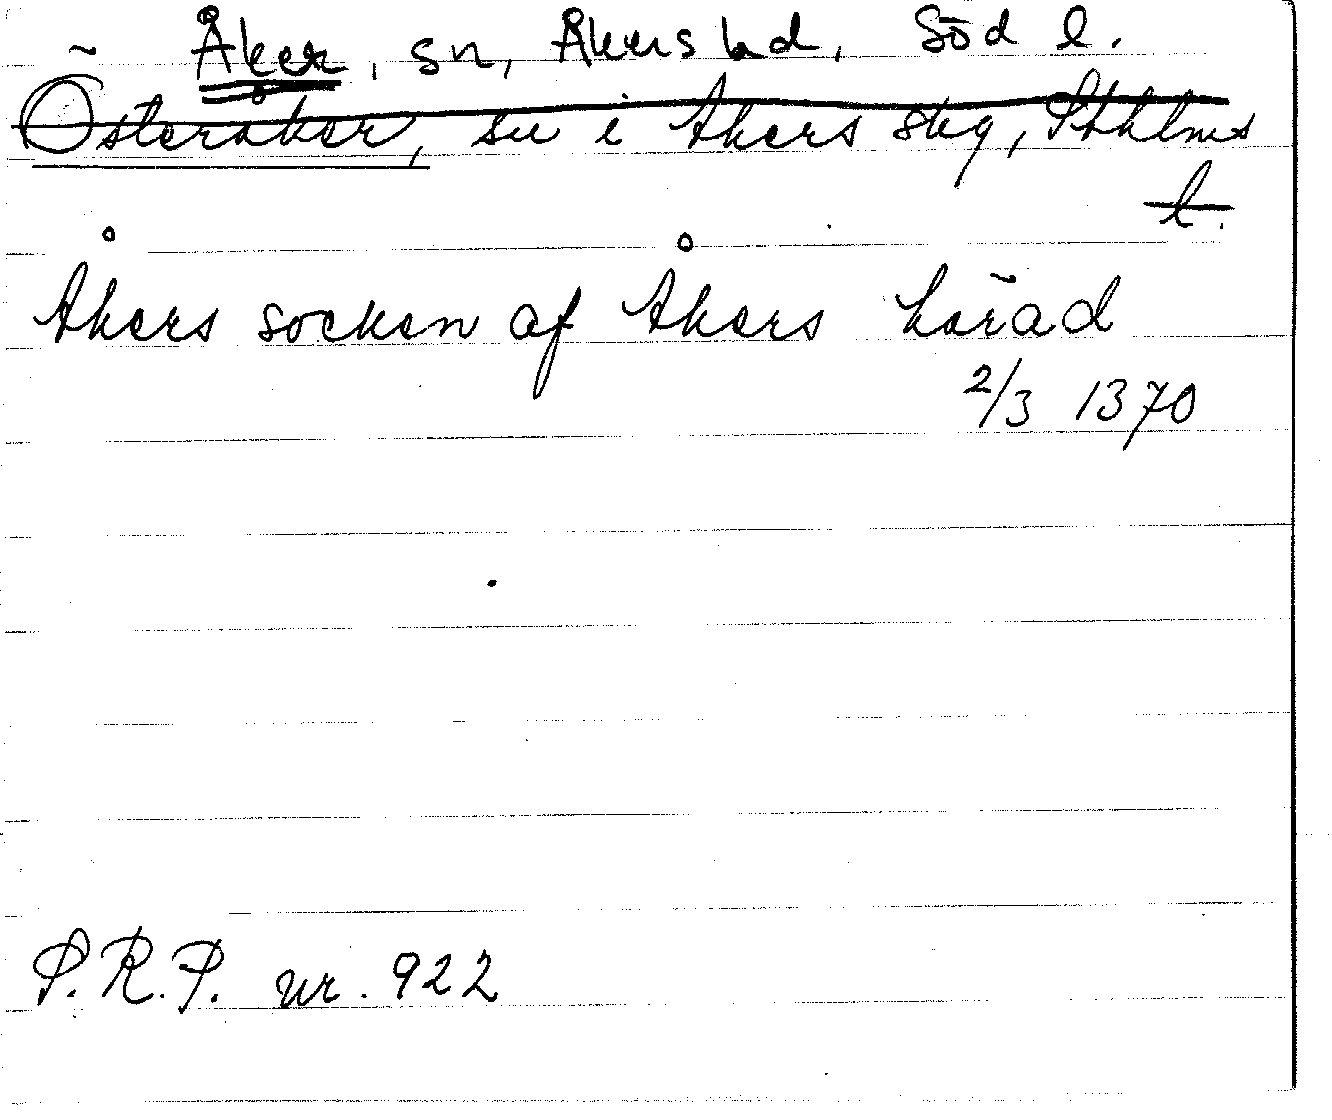 Åker, sn, Åkers hd, Söd l.
Österåker, sn i Åkers skg, Sthlms
l.
Åkers socken af Åkers häräd
2/3 1370
P.R.P. nr. 922